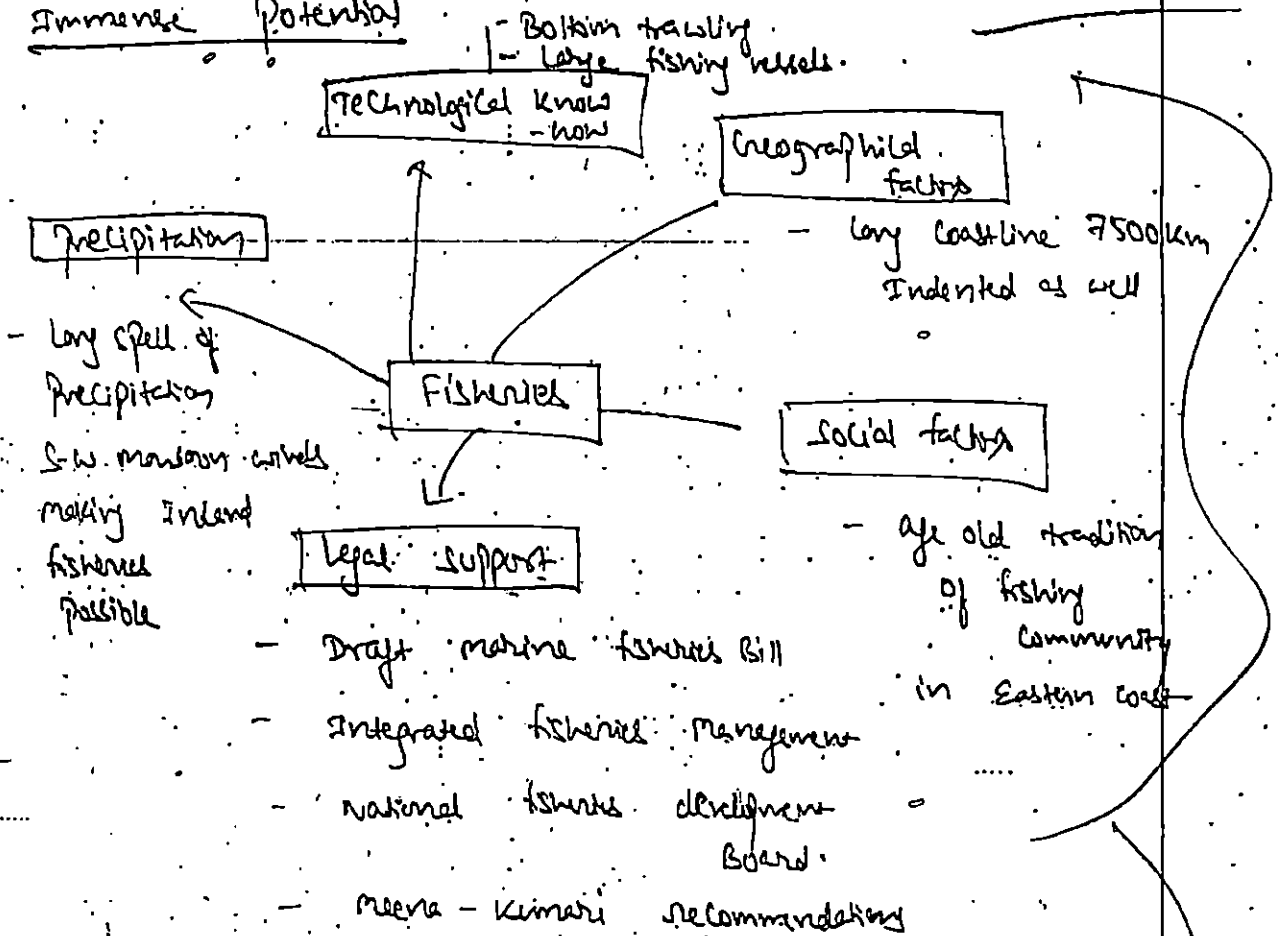 Immense Potential
- Bottom trawling.
- Large fishing vessels.
Technological know
-how
Geographical
factors
- Long Coastline 7500 Km
Indented as well
Precipitation
- Long spell of
Precipitation
S-W. monsoon winds
making Inland
fisheries
possible
Fisheries
Social factors
- age old tradition
of fishing
community
in Eastern coast
Legal support
- Draft marine fisheries Bill
- Integrated fisheries Management
- National fisheries development
Board.
- Meena-Kumari recommendations